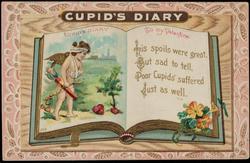 CUPID'S DIARY
CUPID'S DIARY
To my Valentine
His spoils were great,
But sad to tell,
Poor Cupid's suffered
Just as well.